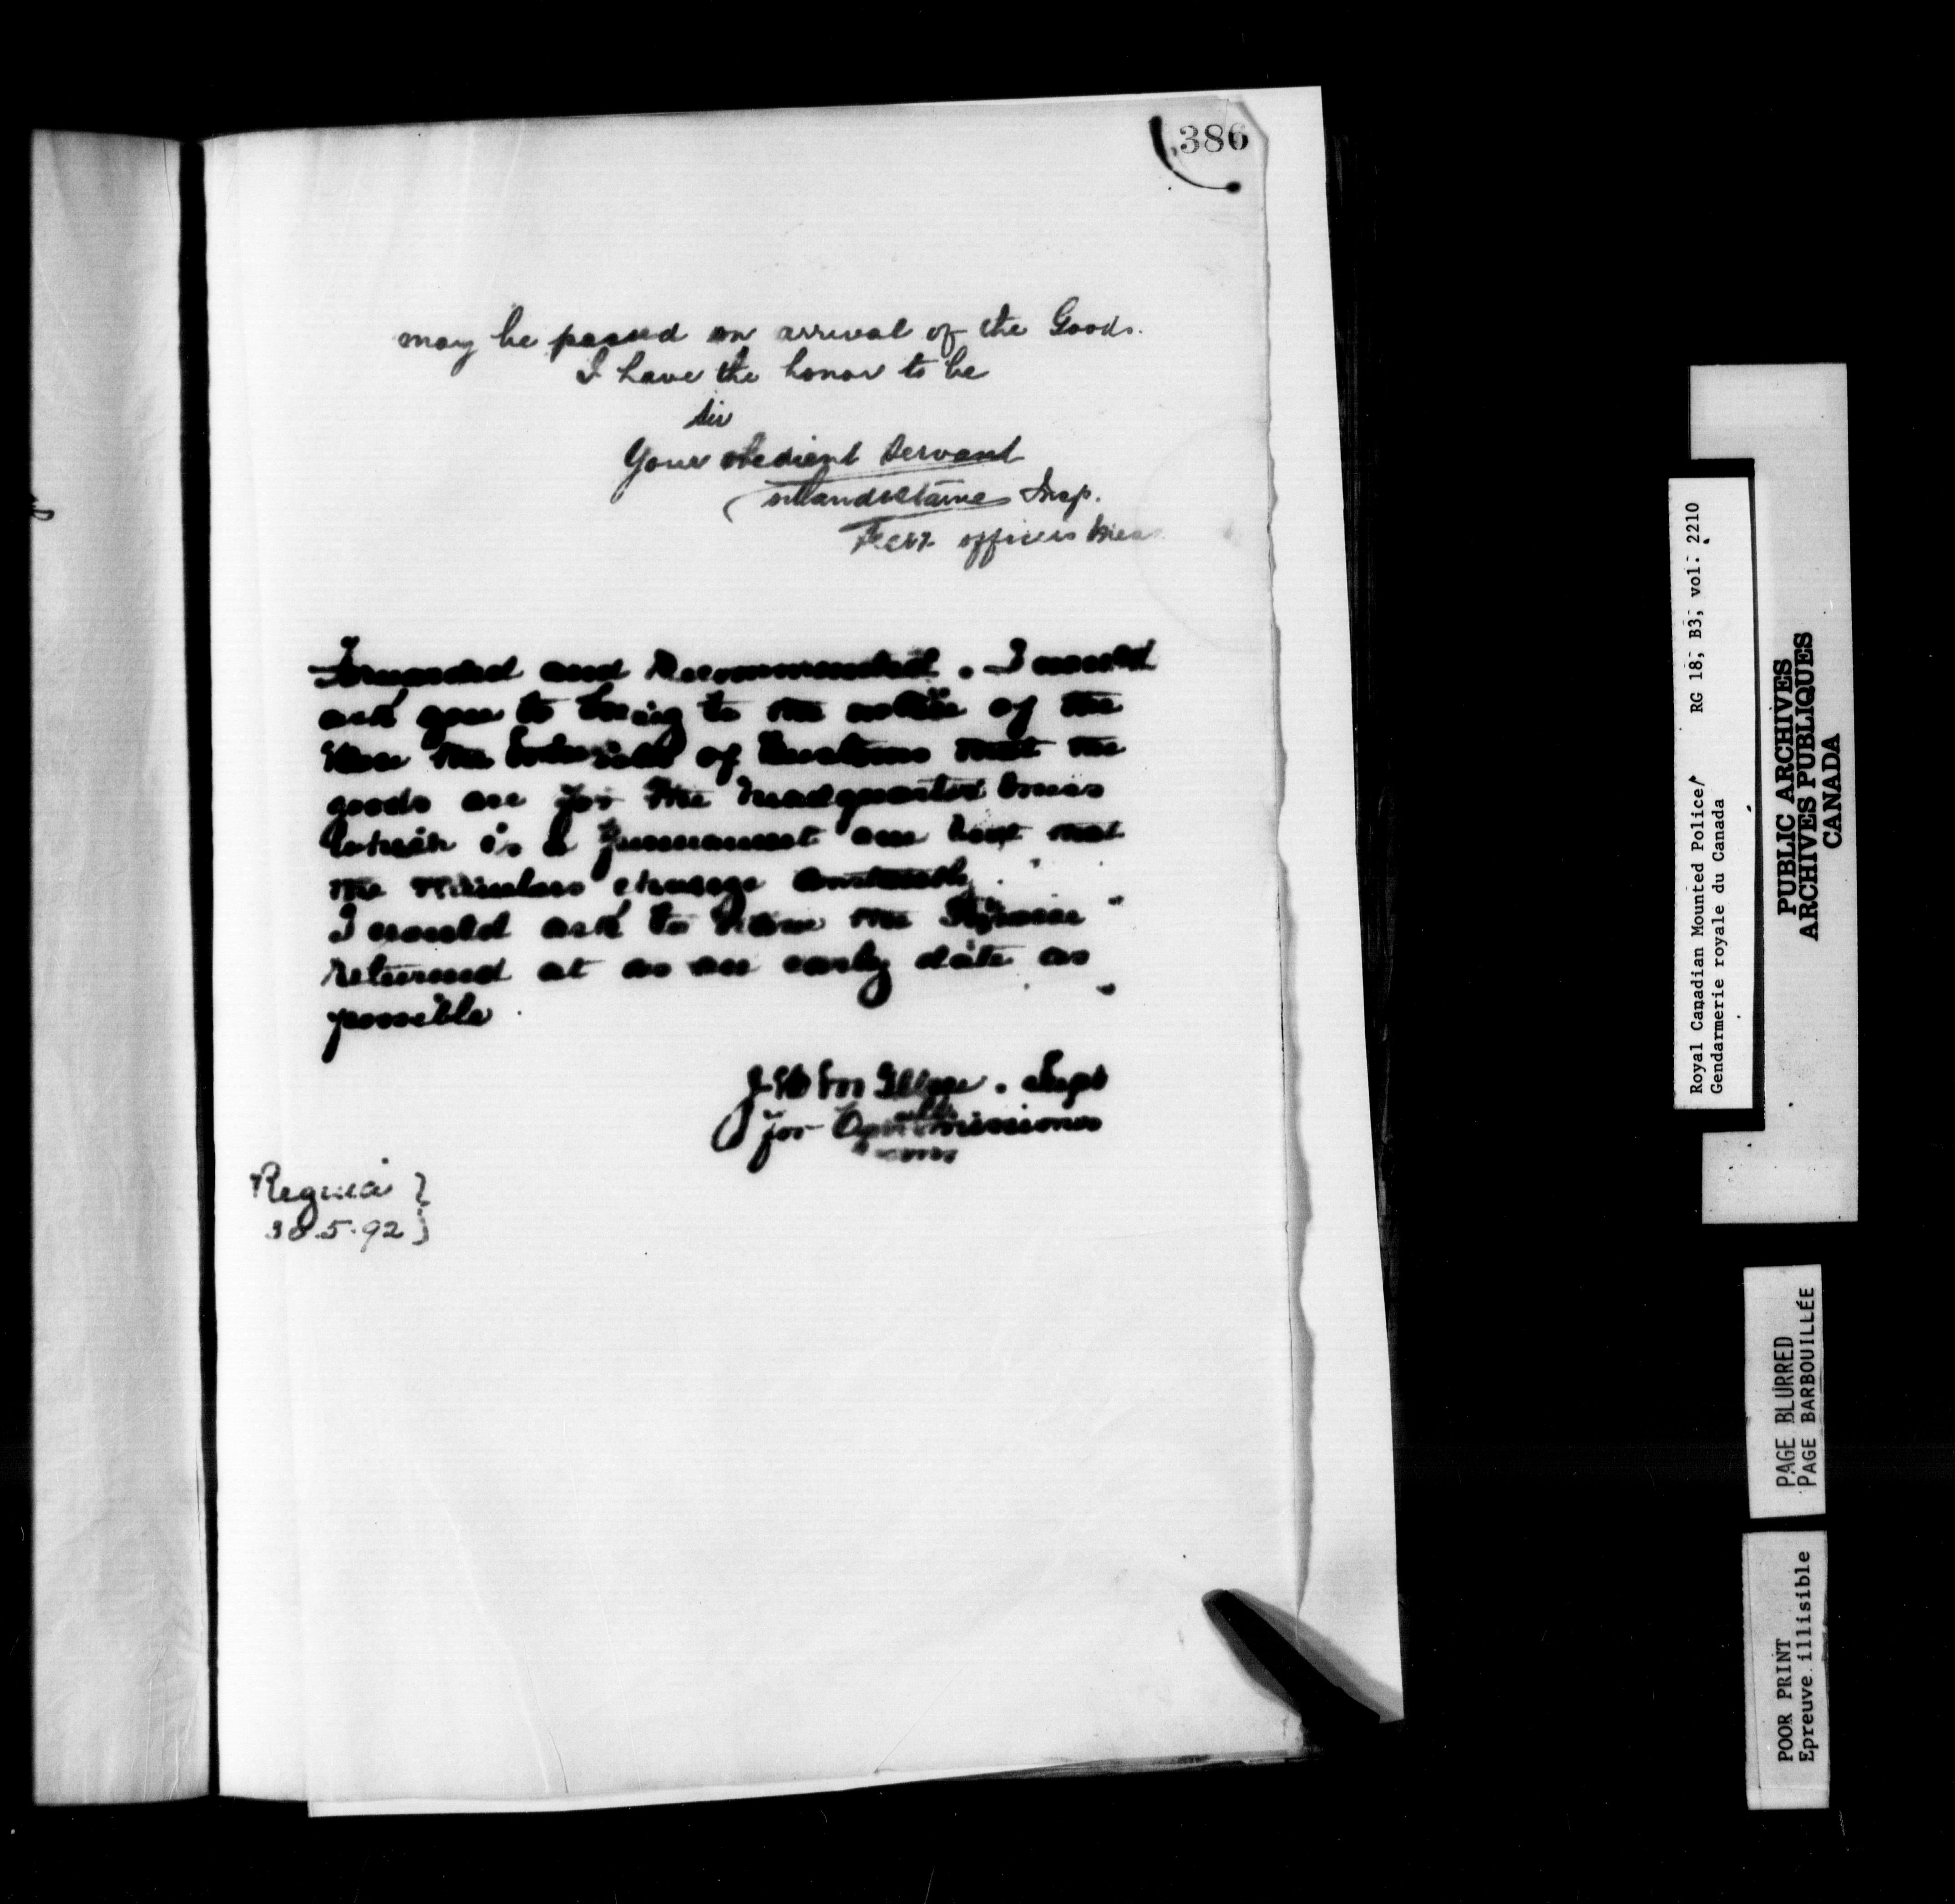 386
may be passed on arrival of the Goods.
I have the honor to be
Sir
Your obedient Servant
Insp.
Secy officers Mess
Forwarded and Recommended. I would
ask you to bring to the notice of the
Hon the of Customs that the
goods are for the headquarter mess
which is a permanent one but that
the members change constantly.
I would ask to have the Invoice
returned at as an early date as
possible.
Supt
for Commissioner
Regina }
30.5.92 }
Royal Canadian Mounted Police/ RG 18, B3, vol. 2210
Gendarmerie royale du Canada
PUBLIC ARCHIVES
ARCHIVES PUBLIQUES
CANADA
PAGE BLURRED
PAGE BARBOUILLÉE
POOR PRINT
Epreuve illisible